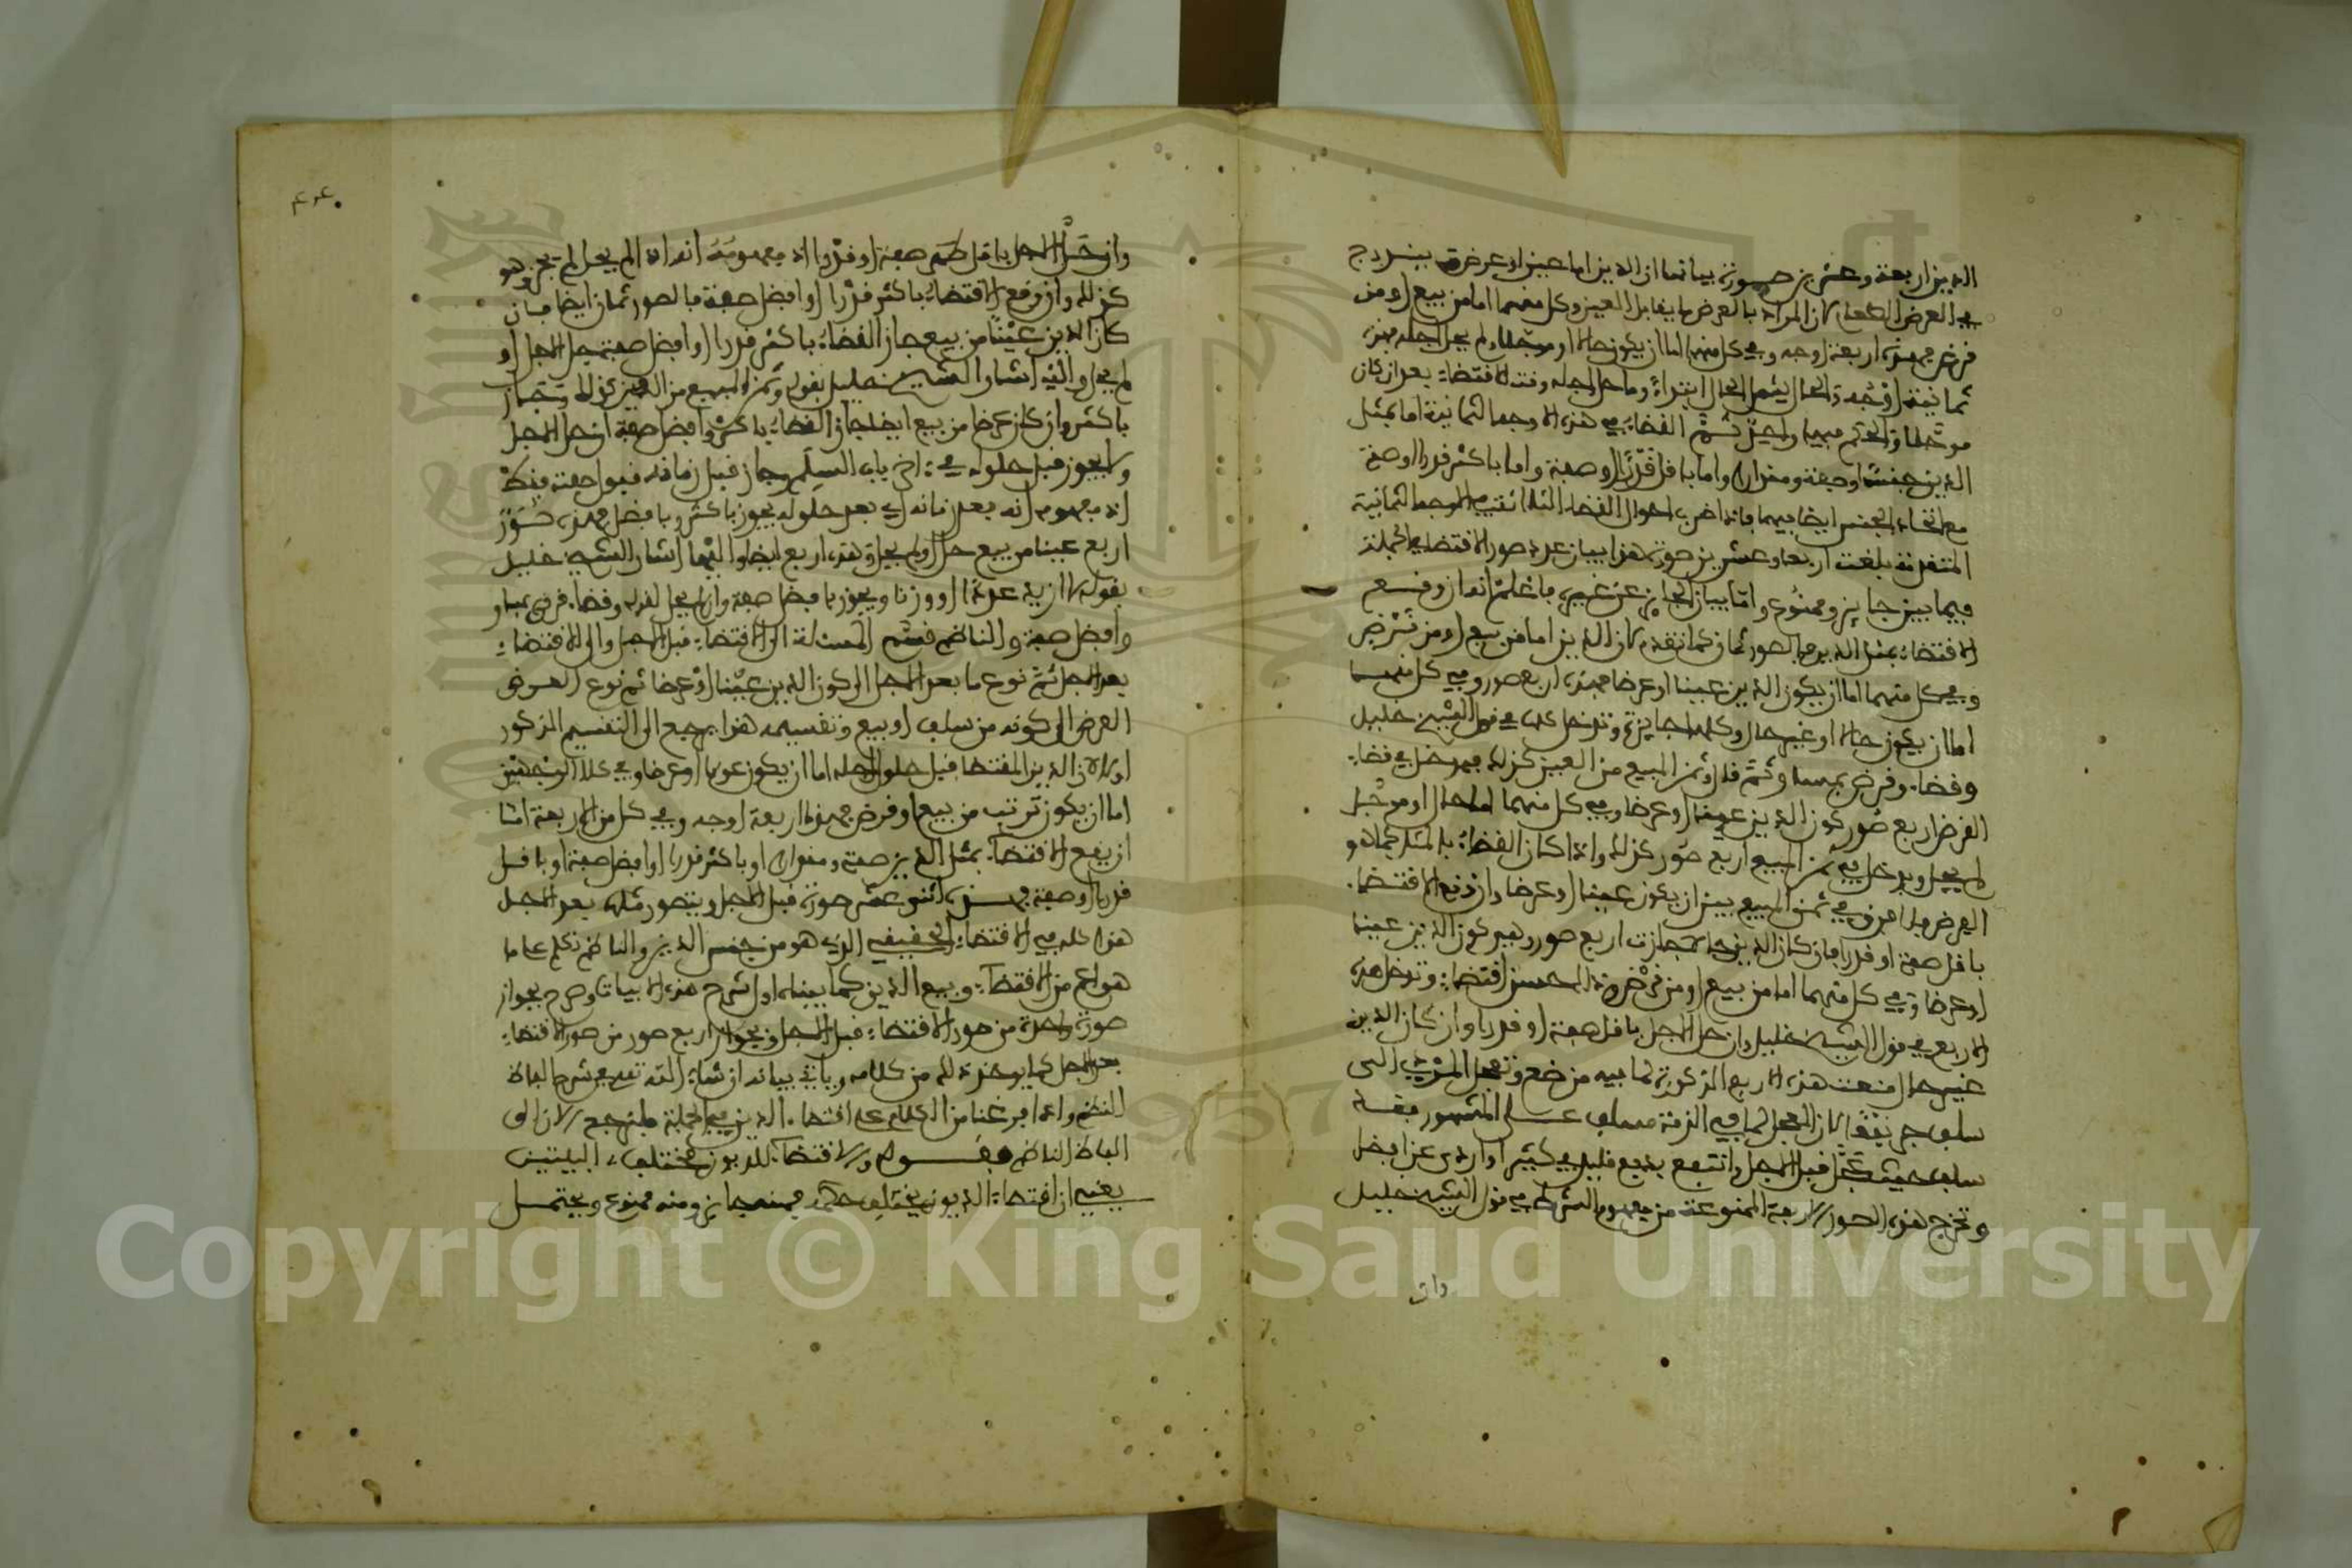 الدين اربعة وعشرين صورة بيانها ان الدين اما عين او عرض ويندرج
في العرض الطعام لان المراد بالعرض ما يقابل العين وكل منهما اما من بيع او من
فرض فهذه اربعة اوجه وفي كل منها اما ان يكون حالا او موجلا ولم يحل اجله فهذه
ثمانية اوجه والحال يشمل الحال ابتداء وما حل اجله وقت الاقتضاء بعد ان كان
موجلا والحكم فيهما واحد ثم القضاء في هذه الاوجه الثمانية اما بمثل
الدين جنسا وصفة ومقدارا واما باقل قدرا او صفة واما باكثر قدرا او صفة
مع اتحاد الجنس ايضا فيهما فاذا ضرب احوال القضاء الثلاثة في الاوجه الثمانية
المتقدمة بلغت اربعا وعشرين صورة هذا بيان عدد صور الاقتضاء في الجملة
فيما بين جايز وممنوع واما بيان الجايز من غيره فاعلم انه ان وقع
الاقتضاء بمثل الدين فالصور ثمان كما تقدم لان الدين اما من بيع او من قرض
وفي كل منهما اما ان يكون الدين عينا او عرضا فهذه اربع صور وفي كل منهما
اما ان يكون حالا او غير حال وكلها جايزة وتدخل كلها في قول الشيخ خليل
وقضاء قرض بمساو وثم قال وثمن المبيع من العين كذلك فيدخل في قضاء
القرض اربع صور كون الدين عينا او عرضا وفي كل منهما اما حال او موجل
لم يحل ويدخل في ثمن المبيع اربع صور كذلك واذا كان القضاء بالمثل كما هو
الفرض فلا فرق في ثمن المبيع بين ان يكون عينا او عرضا وان وقع الاقتضاء
باقل صفة او قدرا فان كان الدين حالا جازت اربع صور وهي كون الدين عينا
او عرضا وفي كل منهما اما من بيع او من قرض وذلك حسن اقتضاء وتدخل هذه
الاربع في قول الشيخ خليل وان حل الاجل باقل صفة او قدرا وان كان الدين
غير حال منعت هذه الاربع المذكورة لما فيه من ضع وتعجل المودي الى
سلف جر نفعا لان المعجل لما في الذمة مسلف على المشهور فقد
سلف حيث عجل قبل الاجل وانتفع بدفع قليل في كثير او اردى عن افضل
وتخرج هذه الصور الاربعة الممنوعة من مفهوم الشرط في قول الشيخ خليل
وان
٤٠٤
وان حل الاجل باقل صفة او قدرا اذ مفهومه انه اذا لم يحل لم يجز وهو
كذلك وان وقع الاقتضاء باكثر قدرا او افضل صفة فالصور ثمان ايضا فان
كان الدين عينا من بيع جاز القضاء باكثر قدرا او افضل صفة حل الاجل او
لم يحل واليه اشار الشيخ خليل بقوله وثمن المبيع من العين كذلك وجاز
باكثر وان كان عرضا من بيع ايضا جاز القضاء باكثر وافضل صفة ان حل الاجل
ولا يجوز قبل حلوله في اخر باب السلم وجاز قبل زمانه قبول صفته فقط
اذ مفهومه انه بعد زمانه اي بعد حلوله يجوز باكثر وبافضل فهذه صور
اربع عينا من بيع حل او لم يحل وهذه اربع ايضا واليها اشار الشيخ خليل
بقوله لا ازيد عددا او وزنا ويجوز بافضل صفة وان لم يحل لقوله وقضاء قرض بمساو
وافضل صفة والناظم قسم المسئلة الى الاقتضاء قبل الاجل والى الاقتضاء
بعد الاجل ثم نوع ما بعد الاجل الى كون الدين عينا او عرضا ثم نوع العرض
العرض الى كونه من سلف او بيع وتقسيمه هذا يرجع الى التقسيم المذكور
اولا لان الدين المقتضى قبل حلول اجله اما ان يكون عينا او عرضا وفي كلا الوجهين
اما ان يكون ترتب من بيع او قرض فهذه اربعة اوجه وفي كل من الاربعة اما
ان يقع الاقتضاء بمثل الدين صفة ومقدارا او باكثر قدرا او افضل صفة او باقل
قدرا او صفة فهذه اثنى عشر صورة قبل الاجل ويتصور مثلها بعد الاجل
هذا كله في الاقتضاء الحقيقي الذي هو من جنس الدين والناظم تكلم على ما
هو اعم من الاقتضاء وبيع الدين كما بيناه اول شرح هذه الابيات وصرح بجواز
صورة واحدة من صور الاقتضاء قبل الاجل وبجواز اربع صور من صور الاقتضاء
بعد الاجل كما يوخذ ذلك من كلامه وياتي بيانه ان شاء الله تعالى في شرح الفاظ
النظم واذا فرغنا من الكلام على اقتضاء الدين في الجملة فلنرجع الان الى
الفاظ الناظم فقوله والاقتضاء للديون مختلف البيتين
يعني ان اقتضاء الديون يختلف حكمه فمنه جايز ومنه ممنوع ويحتمل
Copyright © King Saud University
1957